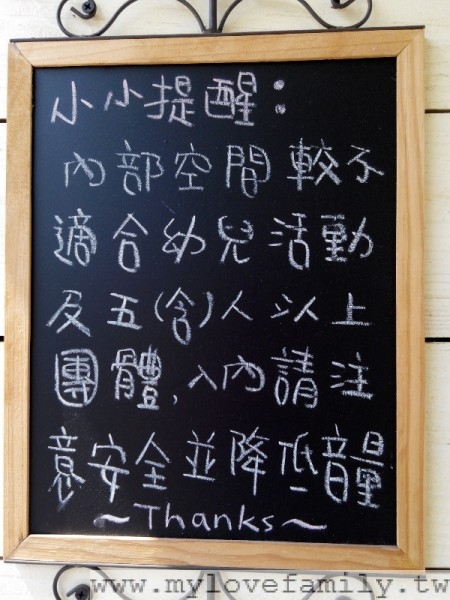 小小提醒：
內部空間較不
適合幼兒活動
及五(含)人以上
團體,入內請注
意安全並降低音量
～Thanks～
www.mylovefamily.tw